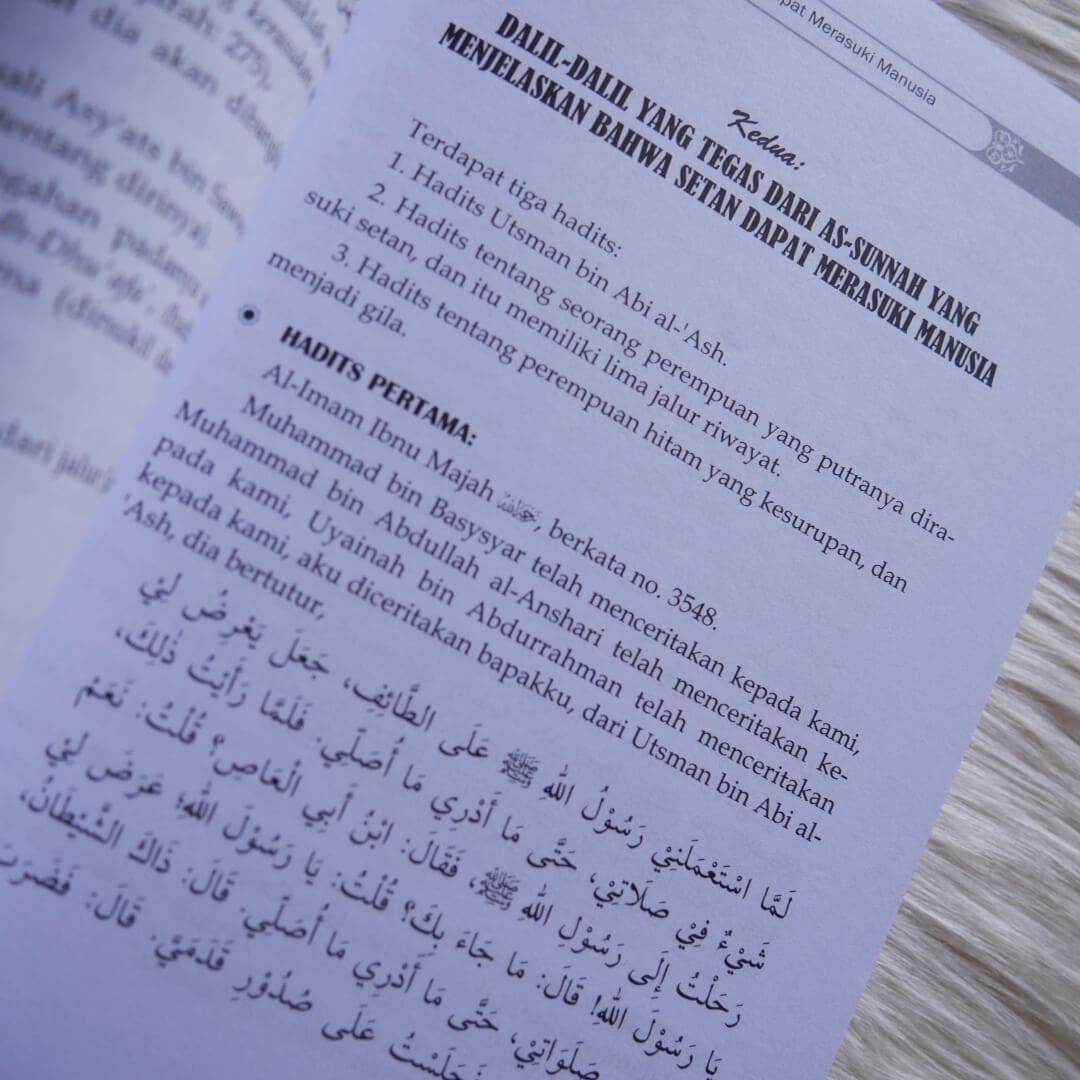 arah: 275),
dia akan
ali Asy'ats bin
tentang dirinya)
dari jalur
pat Merasuki Manusia
Kedua:
DALIL-DALIL YANG TEGAS DARI AS-SUNNAH YANG
MENJELASKAN BAHWA SETAN DAPAT MERASUKI MANUSIA
Terdapat tiga hadits:
1. Hadits Utsman bin Abi al-'Ash.
2. Hadits tentang seorang perempuan yang putranya dira-
suki setan, dan itu memiliki lima jalur riwayat.
3. Hadits tentang perempuan hitam yang kesurupan, dan
menjadi gila.
HADITS PERTAMA:
Al-Imam Ibnu Majah رحمه الله, berkata no. 3548.
Muhammad bin Basysyar telah menceritakan kepada kami,
Muhammad bin Abdullah al-Anshari telah menceritakan ke-
pada kami, Uyainah bin Abdurrahman telah menceritakan
kepada kami, aku diceritakan bapakku, dari Utsman bin Abi al-
'Ash, dia bertutur,
لَمَّا اسْتَعْمَلَنِيْ رَسُوْلُ اللهِ ﷺ عَلَى الطَّائِفِ، جَعَلَ يَعْرِضُ لِيْ
شَيْءٌ فِيْ صَلَاتِيْ، حَتَّى مَا أَدْرِي مَا أُصَلِّي. فَلَمَّا رَأَيْتُ ذٰلِكَ،
رَحَلْتُ إِلَى رَسُوْلِ اللهِ ﷺ، فَقَالَ: ابْنُ أَبِي الْعَاصِ؟ قُلْتُ: نَعَمْ
يَا رَسُوْلَ اللهِ! قَالَ: مَا جَاءَ بِكَ؟ قُلْتُ: يَا رَسُوْلَ اللهِ! عَرَضَ لِيْ
صَلَوَاتِيْ، حَتَّى مَا أَدْرِي مَا أُصَلِّي. قَالَ: ذَاكَ الشَّيْطَانُ،
فَجَلَسْتُ عَلَى صُدُوْرِ قَدَمَيَّ. قَالَ: فَضَرَبَ